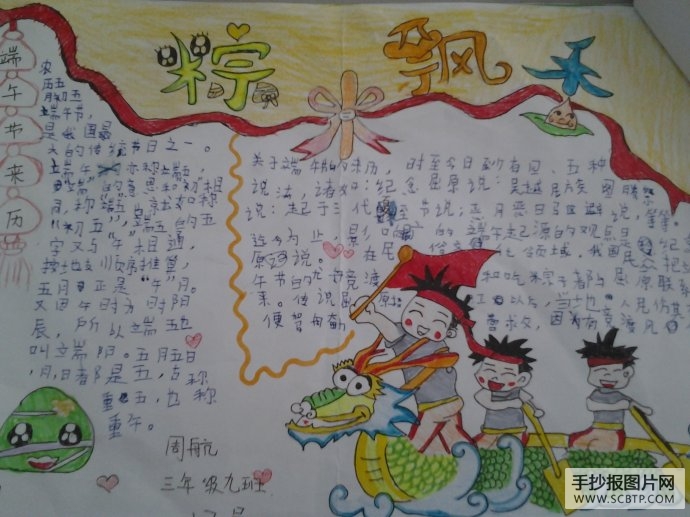 粽飘香
端午节来历
农历五
月初五
端午节，
是我国最
大的传统节日之一。
端午亦称端五，
端的意思和初相
同，称端五也就如称
初五；端五的五
字又与午相通，
按地支顺序推算，
五月正是午月。
又因午时为阳
辰，所以端五也
叫端阳。五月五日
，月，日都是五，古称
重五，也称
重午。
周航
三年级九班
关于端午的来历，时至今日到有四、五种
说法，诸如：纪念屈原说；吴越民族图腾祭
说；起于三代至节说；正月恶日避说，等等。
迄今为止，影的端午起源的观点是纪念
原说。在民俗领域，我国民众把
午节的竞渡和吃粽子都屈原联系
来。传说屈原江以后，当地人民伤其
便驾舟奋营救，因有竞渡风
手抄报图片网
WWW.SCBTP.COM